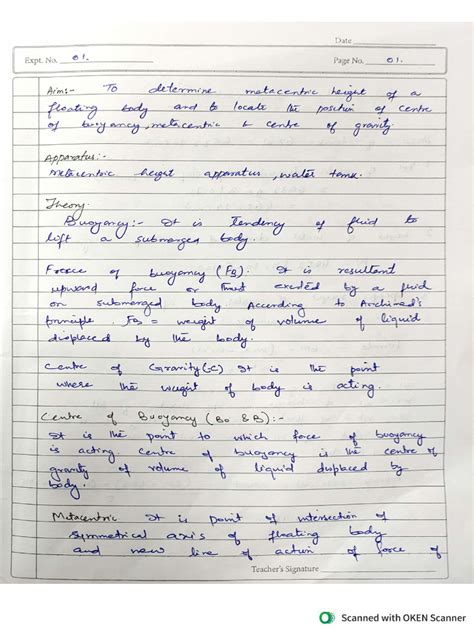 Date
Expt. No. 01.
Page No. 01.
Aim:- To determine metacentric height of a
floating body and to locate the position of centre
of buoyancy, metacentric & centre of gravity
Apparatus:-
Metacentric height apparatus, water tank.
Theory
Buoyancy:- It is Tendency of fluid to
lift a submerged body.
Froece of buoyancy (FB). It is resultant
upward force or Thrust exerted by a fluid
on submerged body According to Archimed's
principle, FB = weight of volume of liquid
displaced by the body.
Centre of Gravity(G) It is the point
where the weight of body is acting.
Centre of Buoyancy (Bo & B):-
It is the point to which force of buoyancy
is acting centre of buoyancy is the centre of
gravity of volume of liquid displaced by
body.
Metacentric It is point of intersection of
symmetrical axis of floating body
and new line of action of force of
Teacher's Signature
Scanned with OKEN Scanner